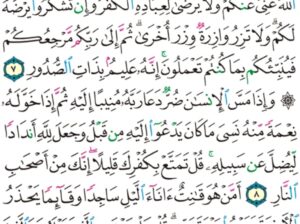 ٱللَّهَ غَنِىٌّ عَنكُمْ ۖ وَلَا يَرْضَىٰ لِعِبَادِهِ ٱلْكُفْرَ ۖ وَإِن تَشْكُرُوا۟ يَرْضَهُ
لَكُمْ ۗ وَلَا تَزِرُ وَازِرَةٌ وِزْرَ أُخْرَىٰ ۗ ثُمَّ إِلَىٰ رَبِّكُم مَّرْجِعُكُمْ
فَيُنَبِّئُكُم بِمَا كُنتُمْ تَعْمَلُونَ ۚ إِنَّهُۥ عَلِيمٌۢ بِذَاتِ ٱلصُّدُورِ ٧
۞ وَإِذَا مَسَّ ٱلْإِنسَـٰنَ ضُرٌّ دَعَا رَبَّهُۥ مُنِيبًا إِلَيْهِ ثُمَّ إِذَا خَوَّلَهُۥ
نِعْمَةً مِّنْهُ نَسِىَ مَا كَانَ يَدْعُوٓا۟ إِلَيْهِ مِن قَبْلُ وَجَعَلَ لِلَّهِ أَندَادًا
لِّيُضِلَّ عَن سَبِيلِهِۦ ۚ قُلْ تَمَتَّعْ بِكُفْرِكَ قَلِيلًا ۖ إِنَّكَ مِنْ أَصْحَـٰبِ
ٱلنَّارِ ٨ أَمَّنْ هُوَ قَـٰنِتٌ ءَانَآءَ ٱلَّيْلِ سَاجِدًا وَقَآئِمًا يَحْذَرُ